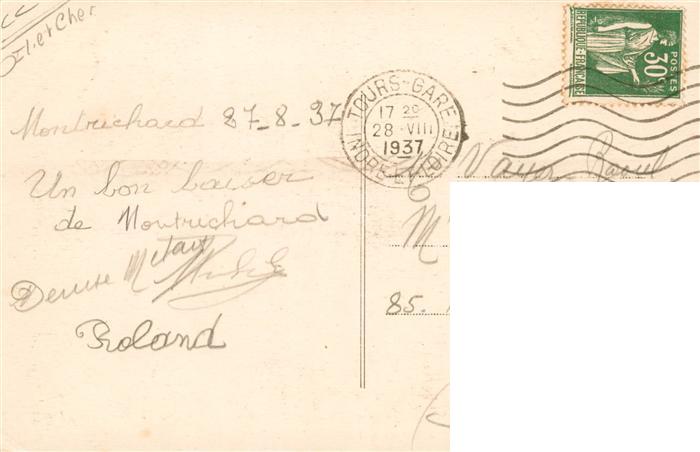 I. et Cher
Montrichard 27-8-37
Un bon baiser
de Montrichard
Denise
Roland
TOURS-GARE
17 20
28-VIII
1937
INDRE-ET-LOIRE
POSTES
30c
REPUBLIQUE-FRANÇAISE
Raoul
M
85.